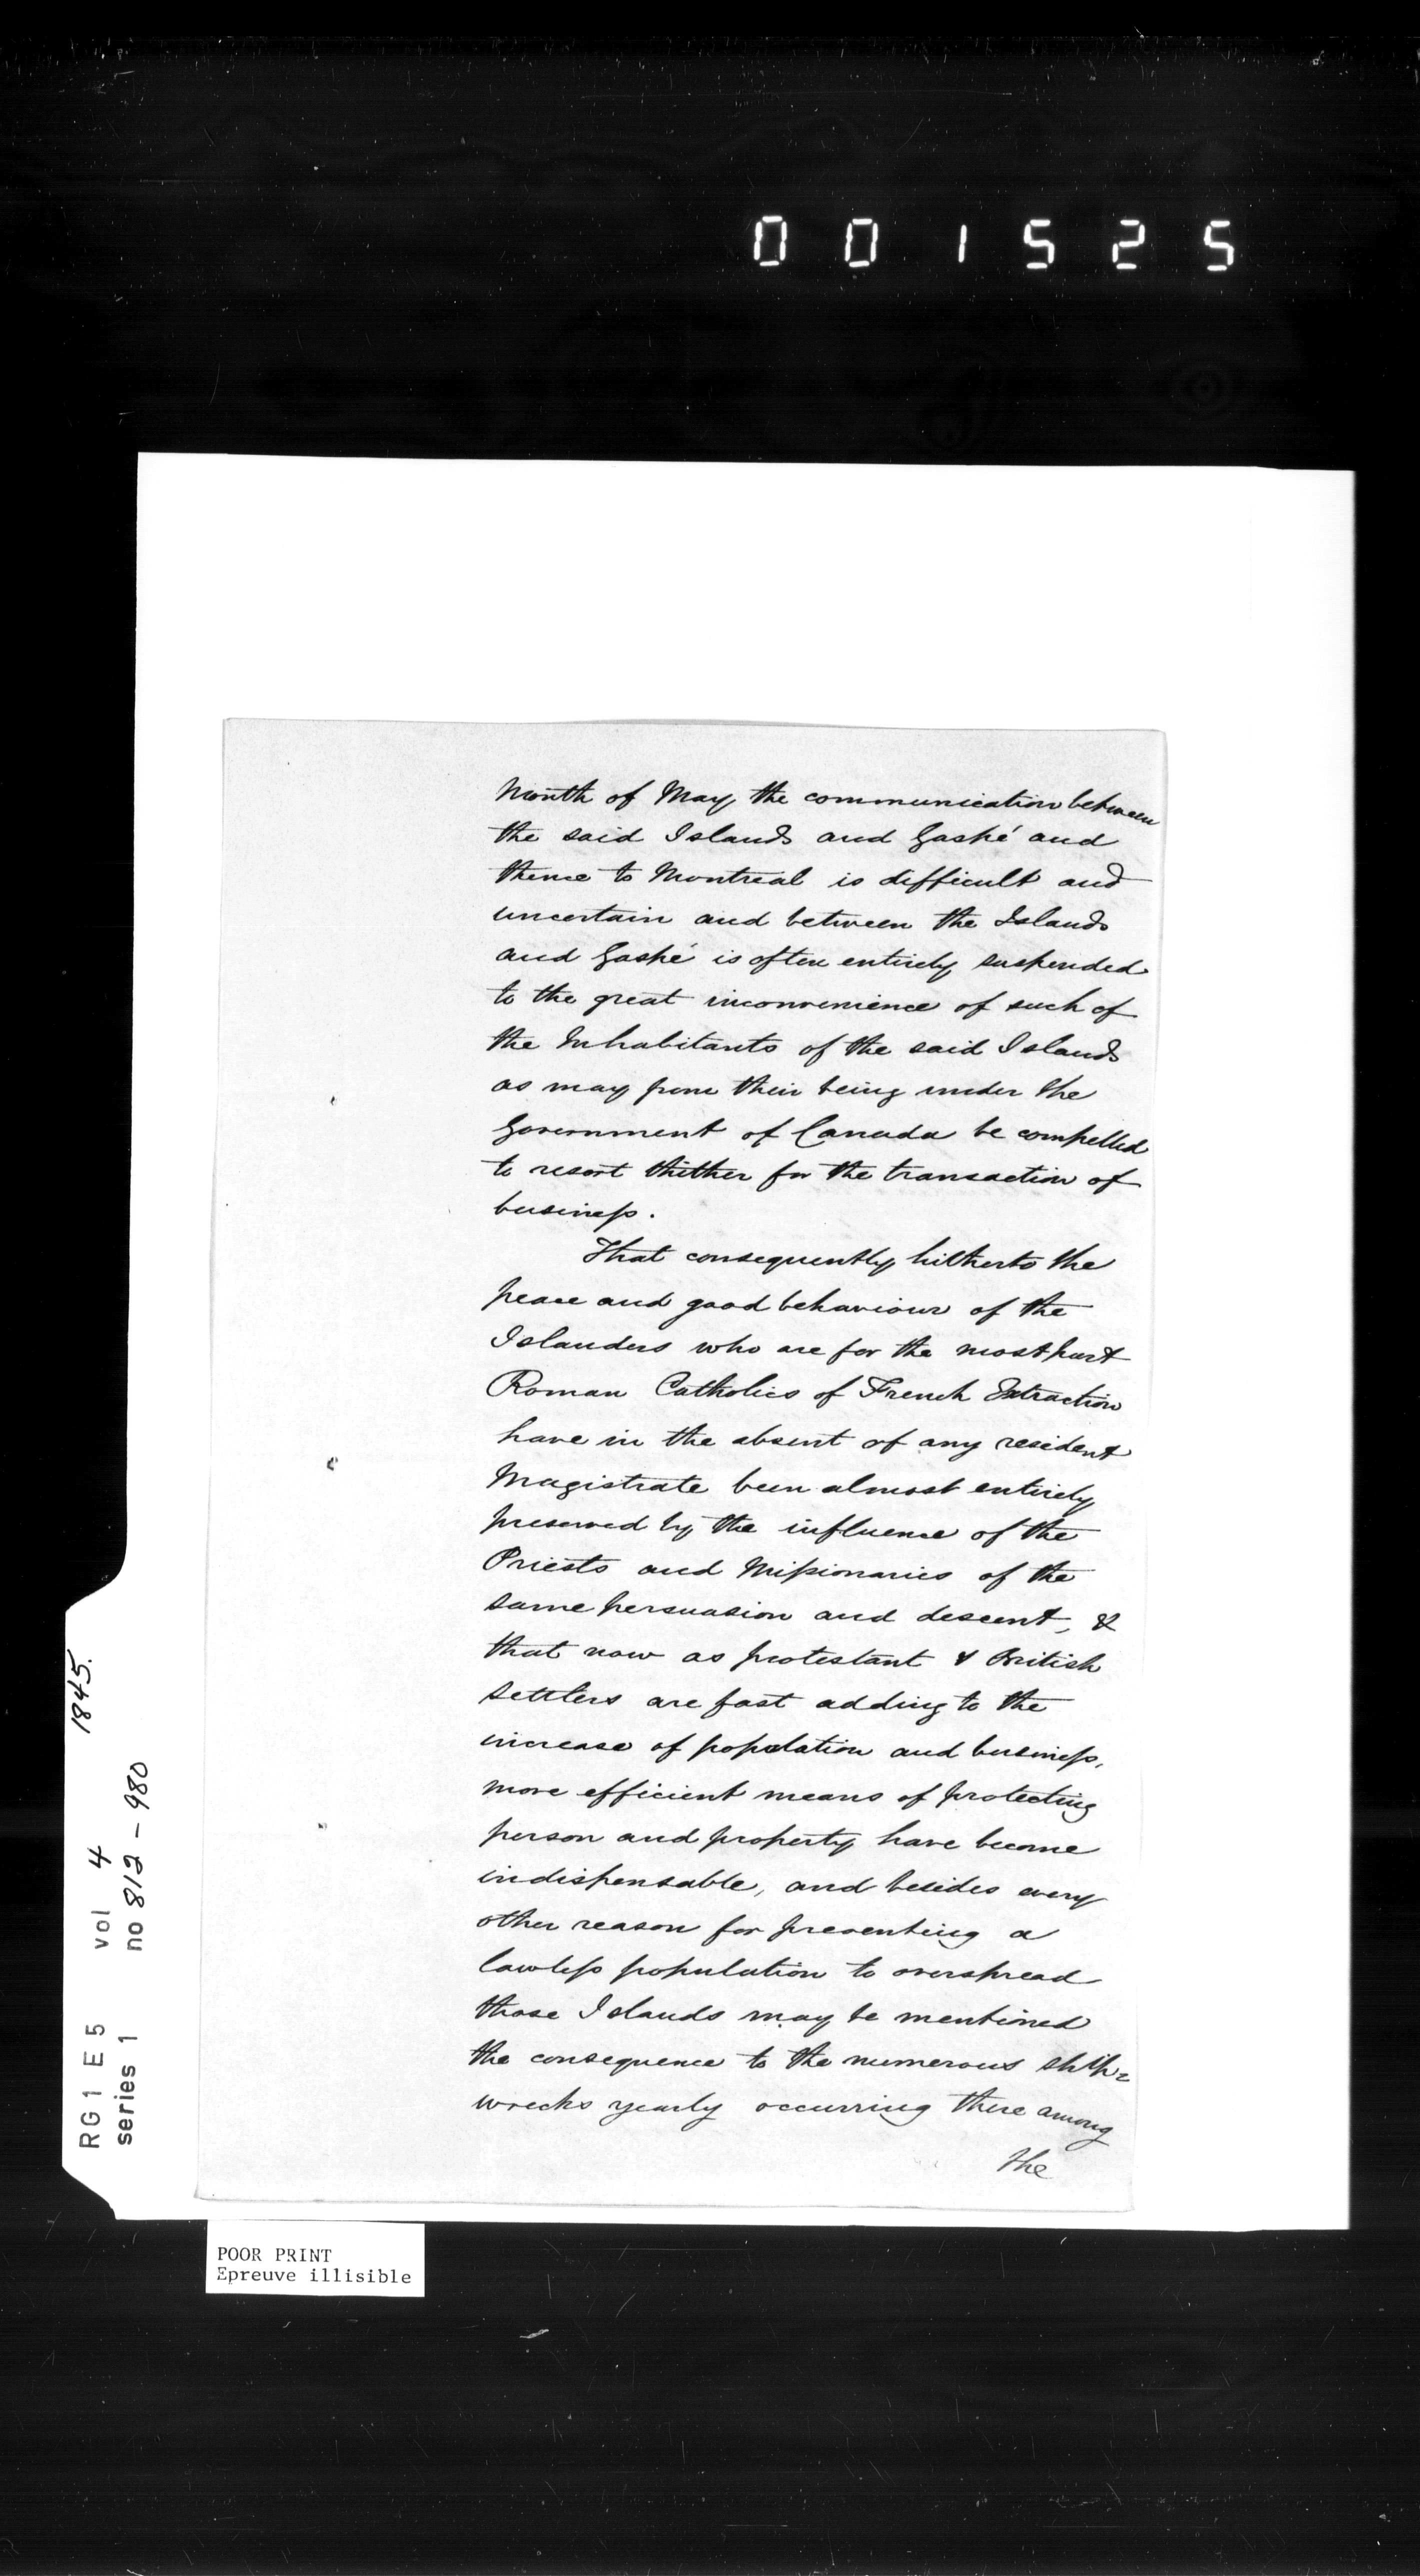 001525
Month of May the communication between
the said Islands and Gaspé and
thence to Montreal is difficult and
uncertain and between the Islands
and Gaspé is often entirely suspended
to the great inconvenience of such of
the Inhabitants of the said Islands
as may from their being under the
Government of Canada be compelled
to resort thither for the transaction of
business.
That consequently hitherto the
peace and good behaviour of the
Islanders who are for the most part
Roman Catholics of French Extraction
have in the absent of any resident
Magistrate been almost entirely
preserved by the influence of the
Priests and Missionaries of the
same persuasion and descent, &
that now as protestant & British
settlers are fast adding to the
increase of population and business,
more efficient means of protecting
person and property have become
indispensable, and besides every
other reason for preventing a
lawless population to overspread
those Islands may be mentioned
the consequence to the numerous ship=
wrecks yearly occurring there among
the
RG 1 E 5 vol 4 1845.
series 1 no 812-980
POOR PRINT
Epreuve illisible